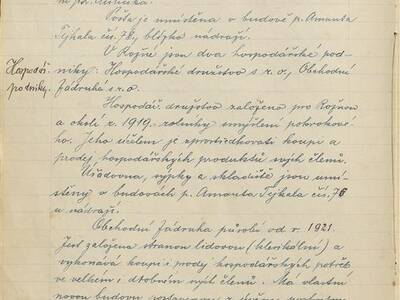 Pošta je umístěna v budově p. Amanta
Tejkala čís. 76, blízko nádraží.
V Rojné jsou dva hospodářské pod-
niky: Hospodářské družstvo s r. o., Obchodní
Jádruha s r. o.
Hospodář.
podniky.
Hospodář. družstvo založeno pro Rojnou
a okolí r. 1919. rolníky smýšlení pokrokové-
ho. Jeho účelem je zprostředkovati koupi a
prodej hospodářských produktů svých členů.
Úřadovna, sýpky a skladiště jsou umí-
stěny v budovách p. Amanta Tejkala čís. 76
u nádraží.
Obchodní Jádruha působí od r. 1921.
Jest založena stranou lidovou (klerikální) a
vykonává koupi i prodej hospodářských potřeb
ve velkém i drobném svých členů. Má vlastní
novou budovu